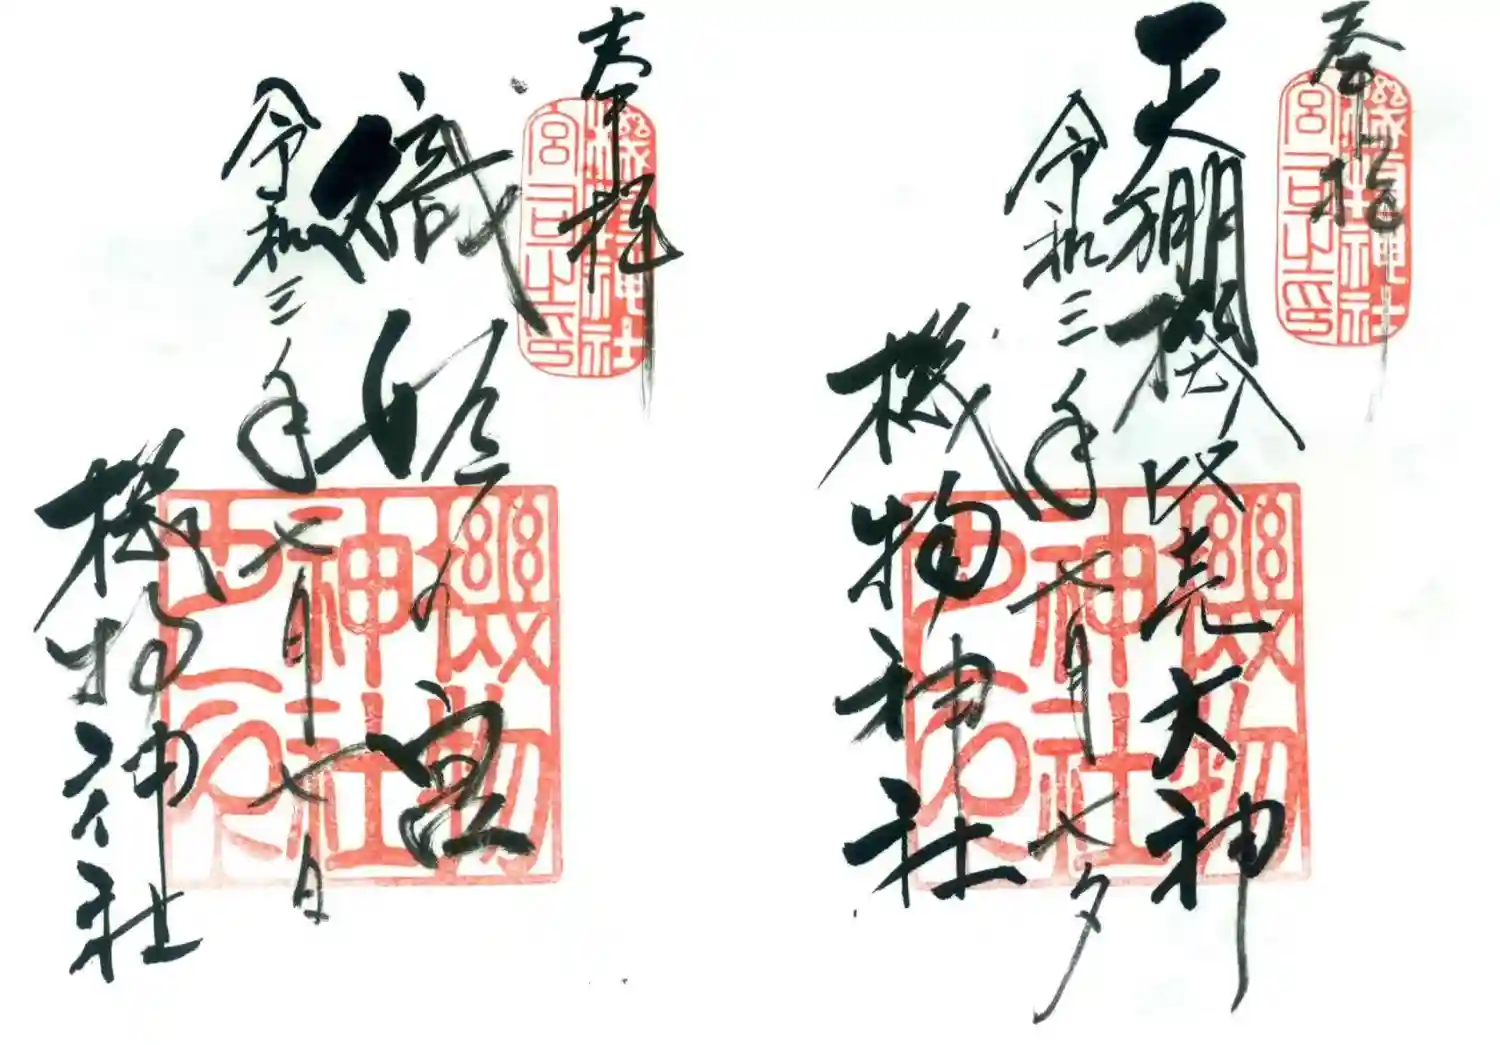 奉拝
機物神社
宮司之印
天棚機比売大神
令和三年七月七夕
機物神社
機物
神社
奉拝
機物神社
宮司之印
織姫乃宮
令和三年七月七日
機物神社
機物
神社